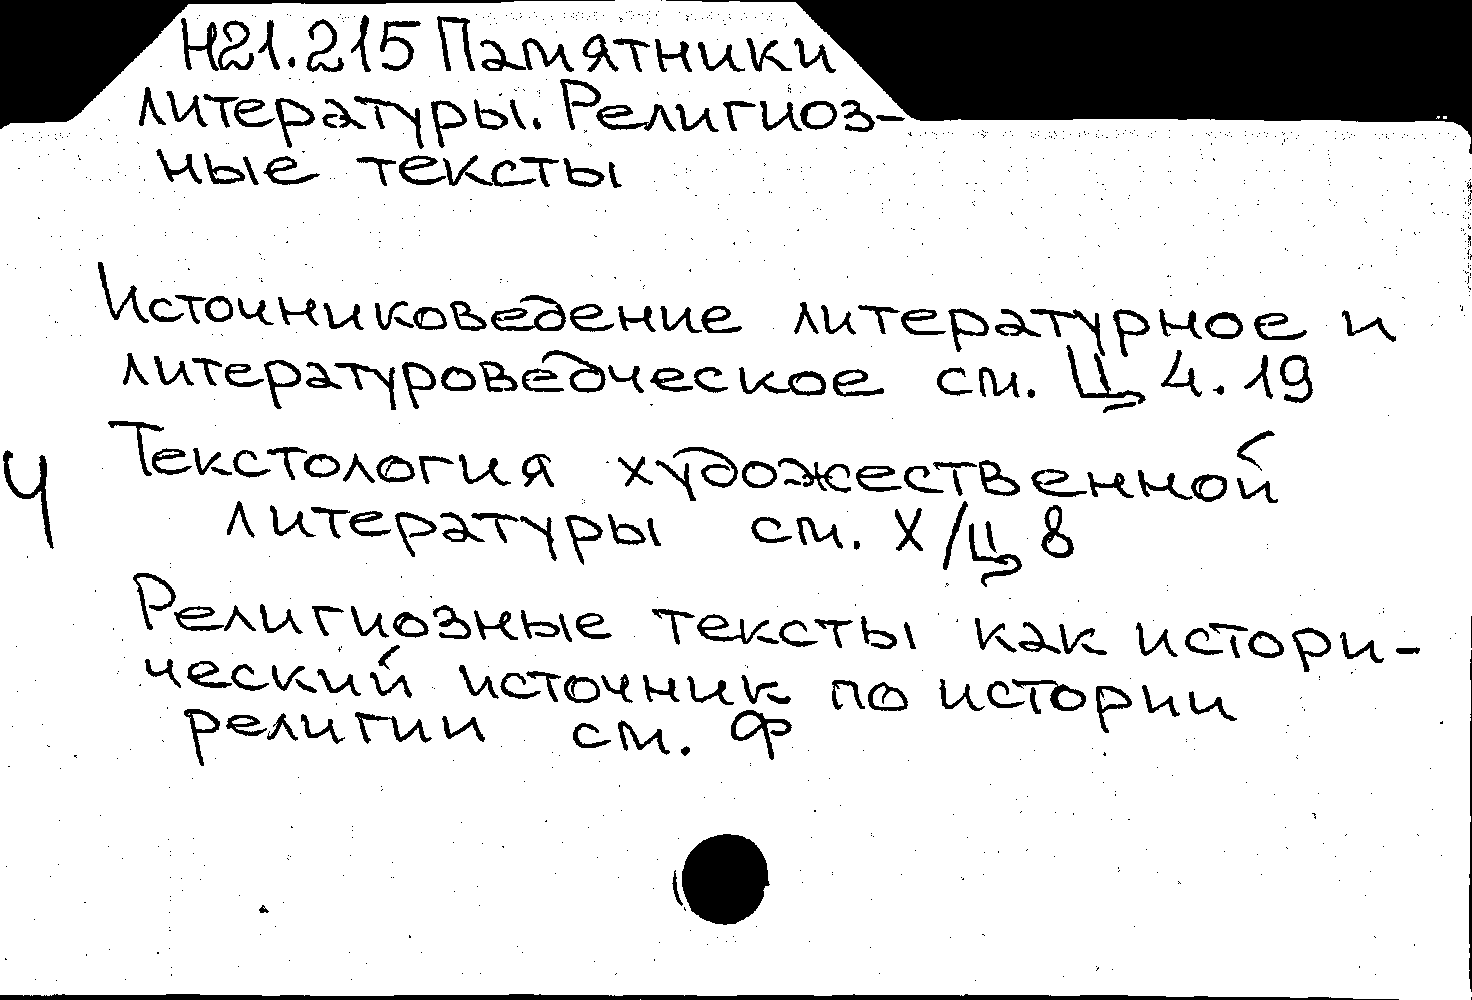 Н21.215 Памятники
литературы. Религиоз-
ные тексты
Источниковедение литературное и
литературоведческое см. Ц 4.19
Ч Текстология художественной
литературы см. Х/Ц 8
Религиозные тексты как истори-
ческий источник по истории
религии см. Ф